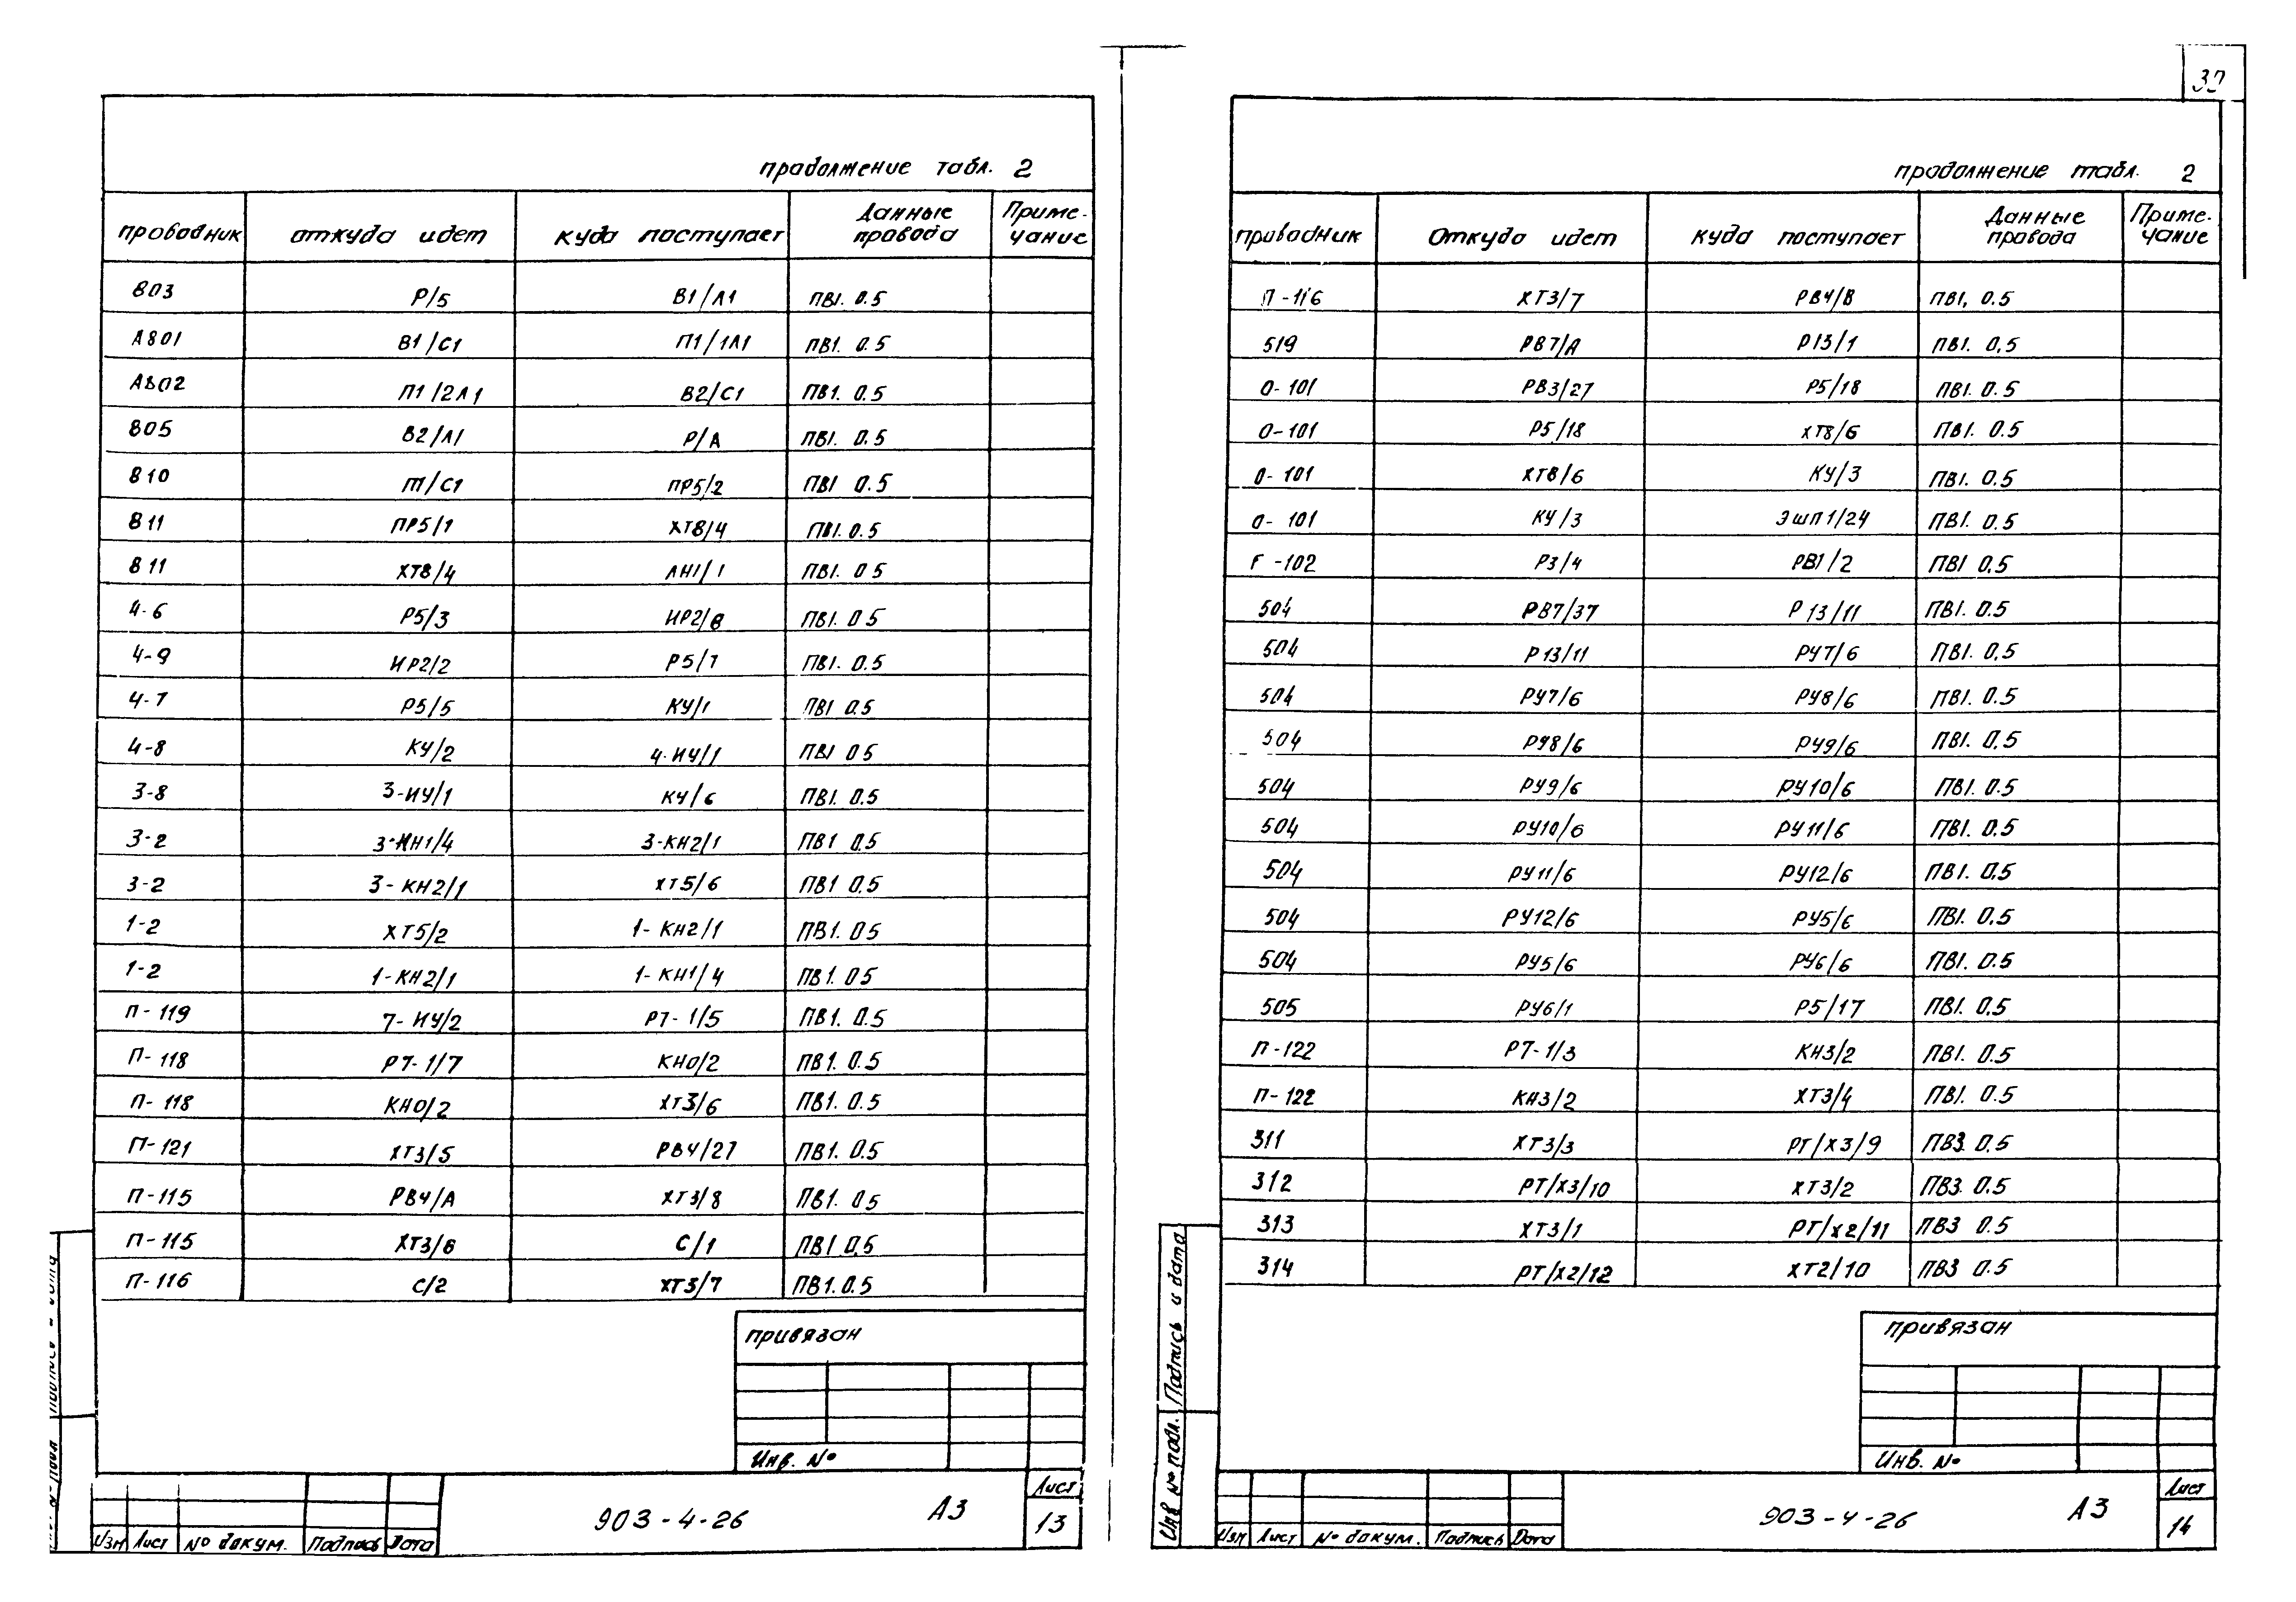 продолжение табл. 2
проводник откуда идет куда поступает Данные провода Приме-чание
803 Р/5 В1/Л1 ПВ1. 0.5
А801 В1/С1 П1/1Л1 ПВ1. 0.5
А802 П1/2Л1 В2/С1 ПВ1. 0.5
805 В2/Л1 Р/А ПВ1. 0.5
810 П1/С1 ПР5/2 ПВ1 0.5
811 ПР5/1 ХТ8/4 ПВ1. 0.5
811 ХТ8/4 ЛН1/1 ПВ1. 0 5
4-6 Р5/3 ИР2/8 ПВ1. 0 5
4-9 ИР2/2 Р5/7 ПВ1. 0.5
4-7 Р5/5 КУ/1 ПВ1 0.5
4-8 КУ/2 4-ИУ/1 ПВ1 0 5
3-8 3-ИУ/1 КУ/6 ПВ1. 0.5
3-2 3-КН1/4 3-КН2/1 ПВ1 0.5
3-2 3-КН2/1 ХТ5/6 ПВ1 0.5
1-2 ХТ5/2 1-КН2/1 ПВ1. 0 5
1-2 1-КН2/1 1-КН1/4 ПВ1. 0 5
П-119 7-ИУ/2 Р7-1/5 ПВ1. 0.5
П-118 Р7-1/7 КН0/2 ПВ1. 0.5
П-118 КН0/2 ХТ3/6 ПВ1. 0.5
П-121 ХТ3/5 РВ4/27 ПВ1. 0.5
П-115 РВ4/А ХТ3/8 ПВ1. 0.5
П-115 ХТ3/8 С/1 ПВ1 0.5
П-116 С/2 ХТ3/7 ПВ1. 0.5
привязан
Инв. №
Изм Лист № докум. Подпись Дата
903-4-26 А3
Лист
13
продолжение табл. 2
проводник Откуда идет куда поступает Данные провода Приме-чание
П-116 ХТ3/7 РВ4/В ПВ1, 0.5
519 РВ7/А Р13/1 ПВ1. 0.5
0-101 РВ3/27 Р5/18 ПВ1. 0.5
0-101 Р5/18 ХТ8/6 ПВ1. 0.5
0-101 ХТ8/6 КУ/3 ПВ1. 0.5
0-101 КУ/3 ЭШП1/24 ПВ1. 0.5
F-102 Р3/4 РВ1/2 ПВ1 0.5
504 РВ7/37 Р13/11 ПВ1. 0.5
504 Р13/11 РУ7/6 ПВ1. 0.5
504 РУ7/6 РУ8/6 ПВ1. 0.5
504 РУ8/6 РУ9/6 ПВ1. 0.5
504 РУ9/6 РУ10/6 ПВ1. 0.5
504 РУ10/6 РУ11/6 ПВ1. 0.5
504 РУ11/6 РУ12/6 ПВ1. 0.5
504 РУ12/6 РУ5/6 ПВ1. 0.5
504 РУ5/6 РУ6/6 ПВ1. 0.5
505 РУ6/1 Р5/17 ПВ1. 0.5
П-122 Р7-1/3 КН3/2 ПВ1. 0.5
П-122 КН3/2 ХТ3/4 ПВ1. 0.5
311 ХТ3/3 РТ/Х3/9 ПВ3. 0.5
312 РТ/Х3/10 ХТ3/2 ПВ3. 0.5
313 ХТ3/1 РТ/Х2/11 ПВ3 0.5
314 РТ/Х2/12 ХТ2/10 ПВ3 0.5
привязан
Инв. №
Инв № подл. Подпись и дата
Изм Лист № докум. Подпись Дата
903-4-26 А3
Лист
14